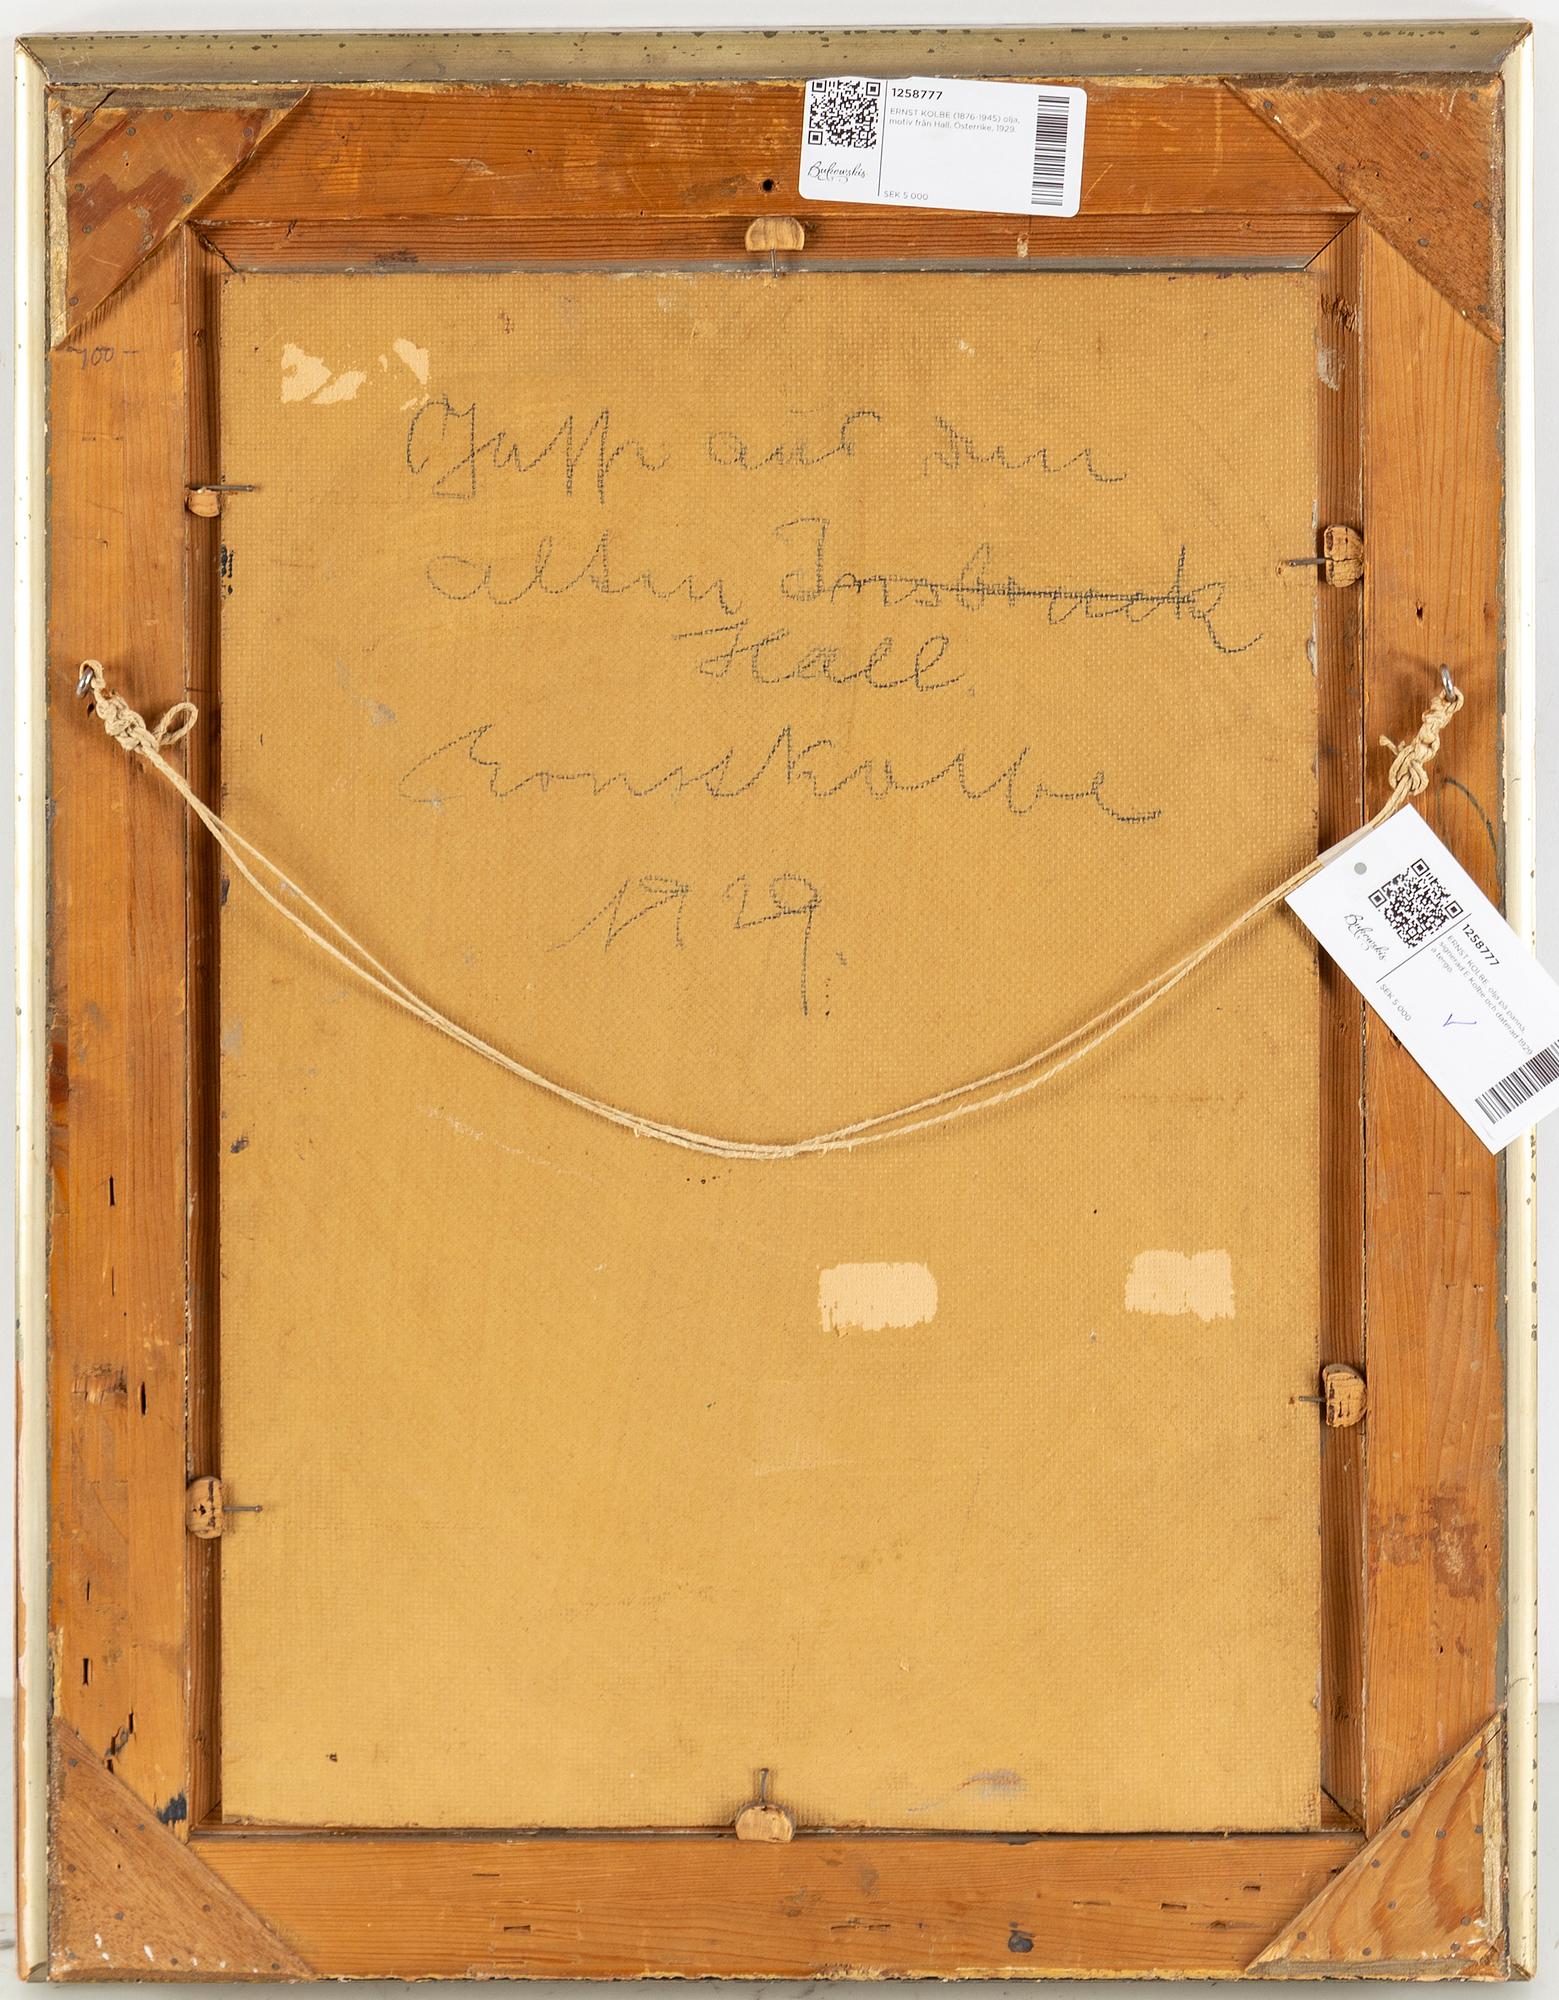 1258777
ERNST KOLBE (1876-1945) olja,
motiv från Hall, Österrike, 1929.
Bukowskis
SEK 5 000
700 -
Gasse aus dem
alten Insbruck
Hall.
Ernst Kolbe
1929.
1258777
ERNST KOLBE, olja på pannå,
signerad E Kolbe och daterad 1929
a tergo.
Bukowskis
SEK 5 000